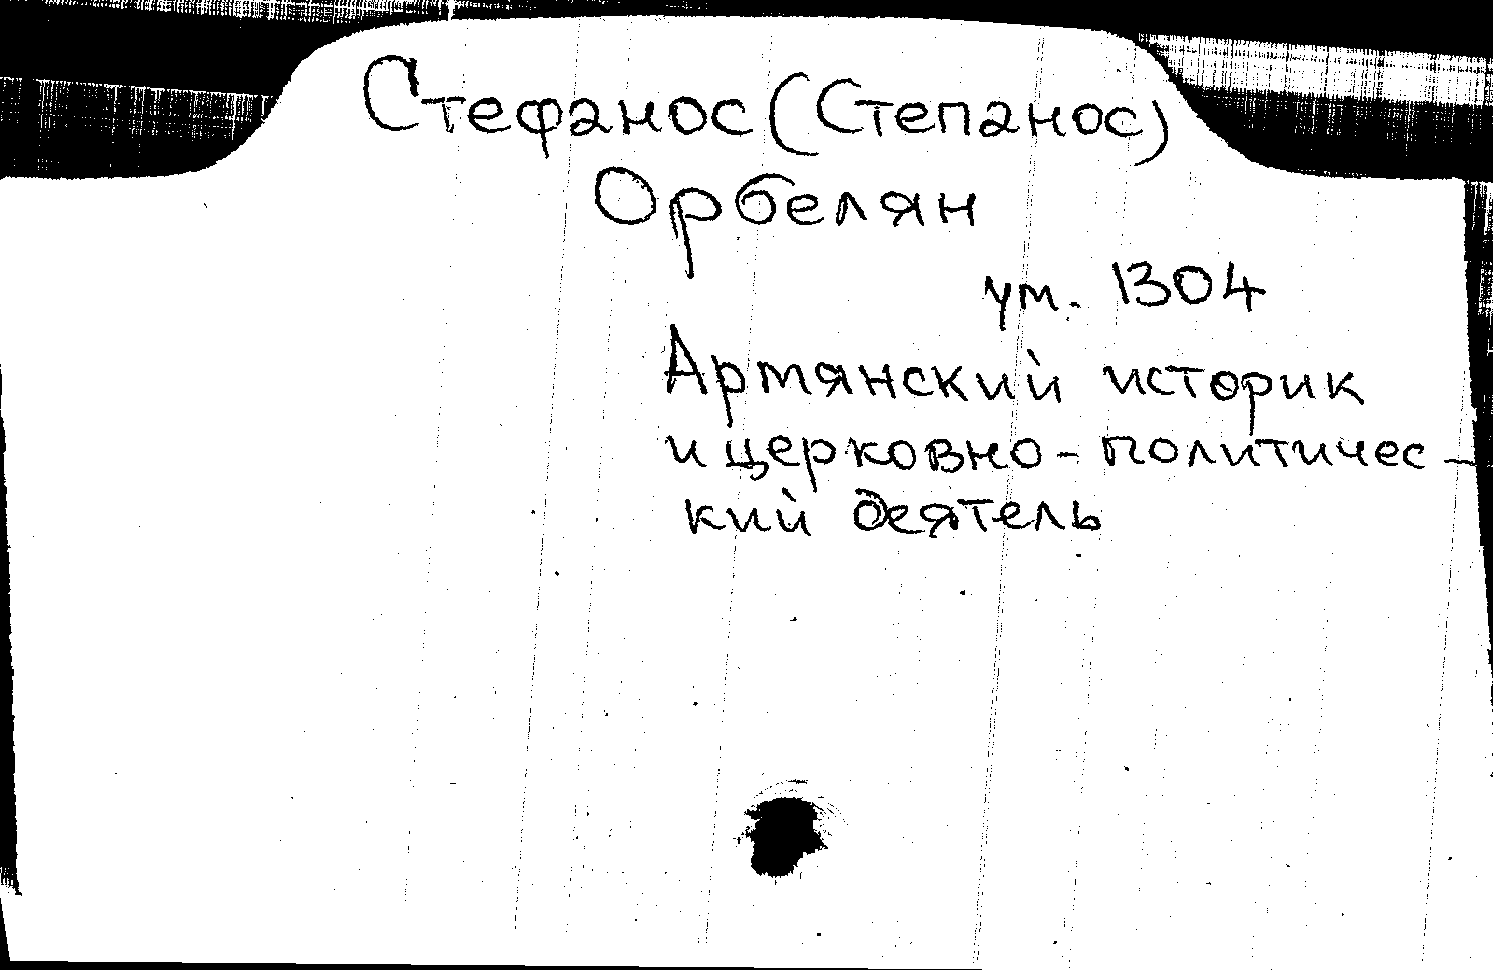 Стефанос (Степанос)
Орбелян
ум. 1304
Армянский историк
и церковно-политичес-
кий деятель